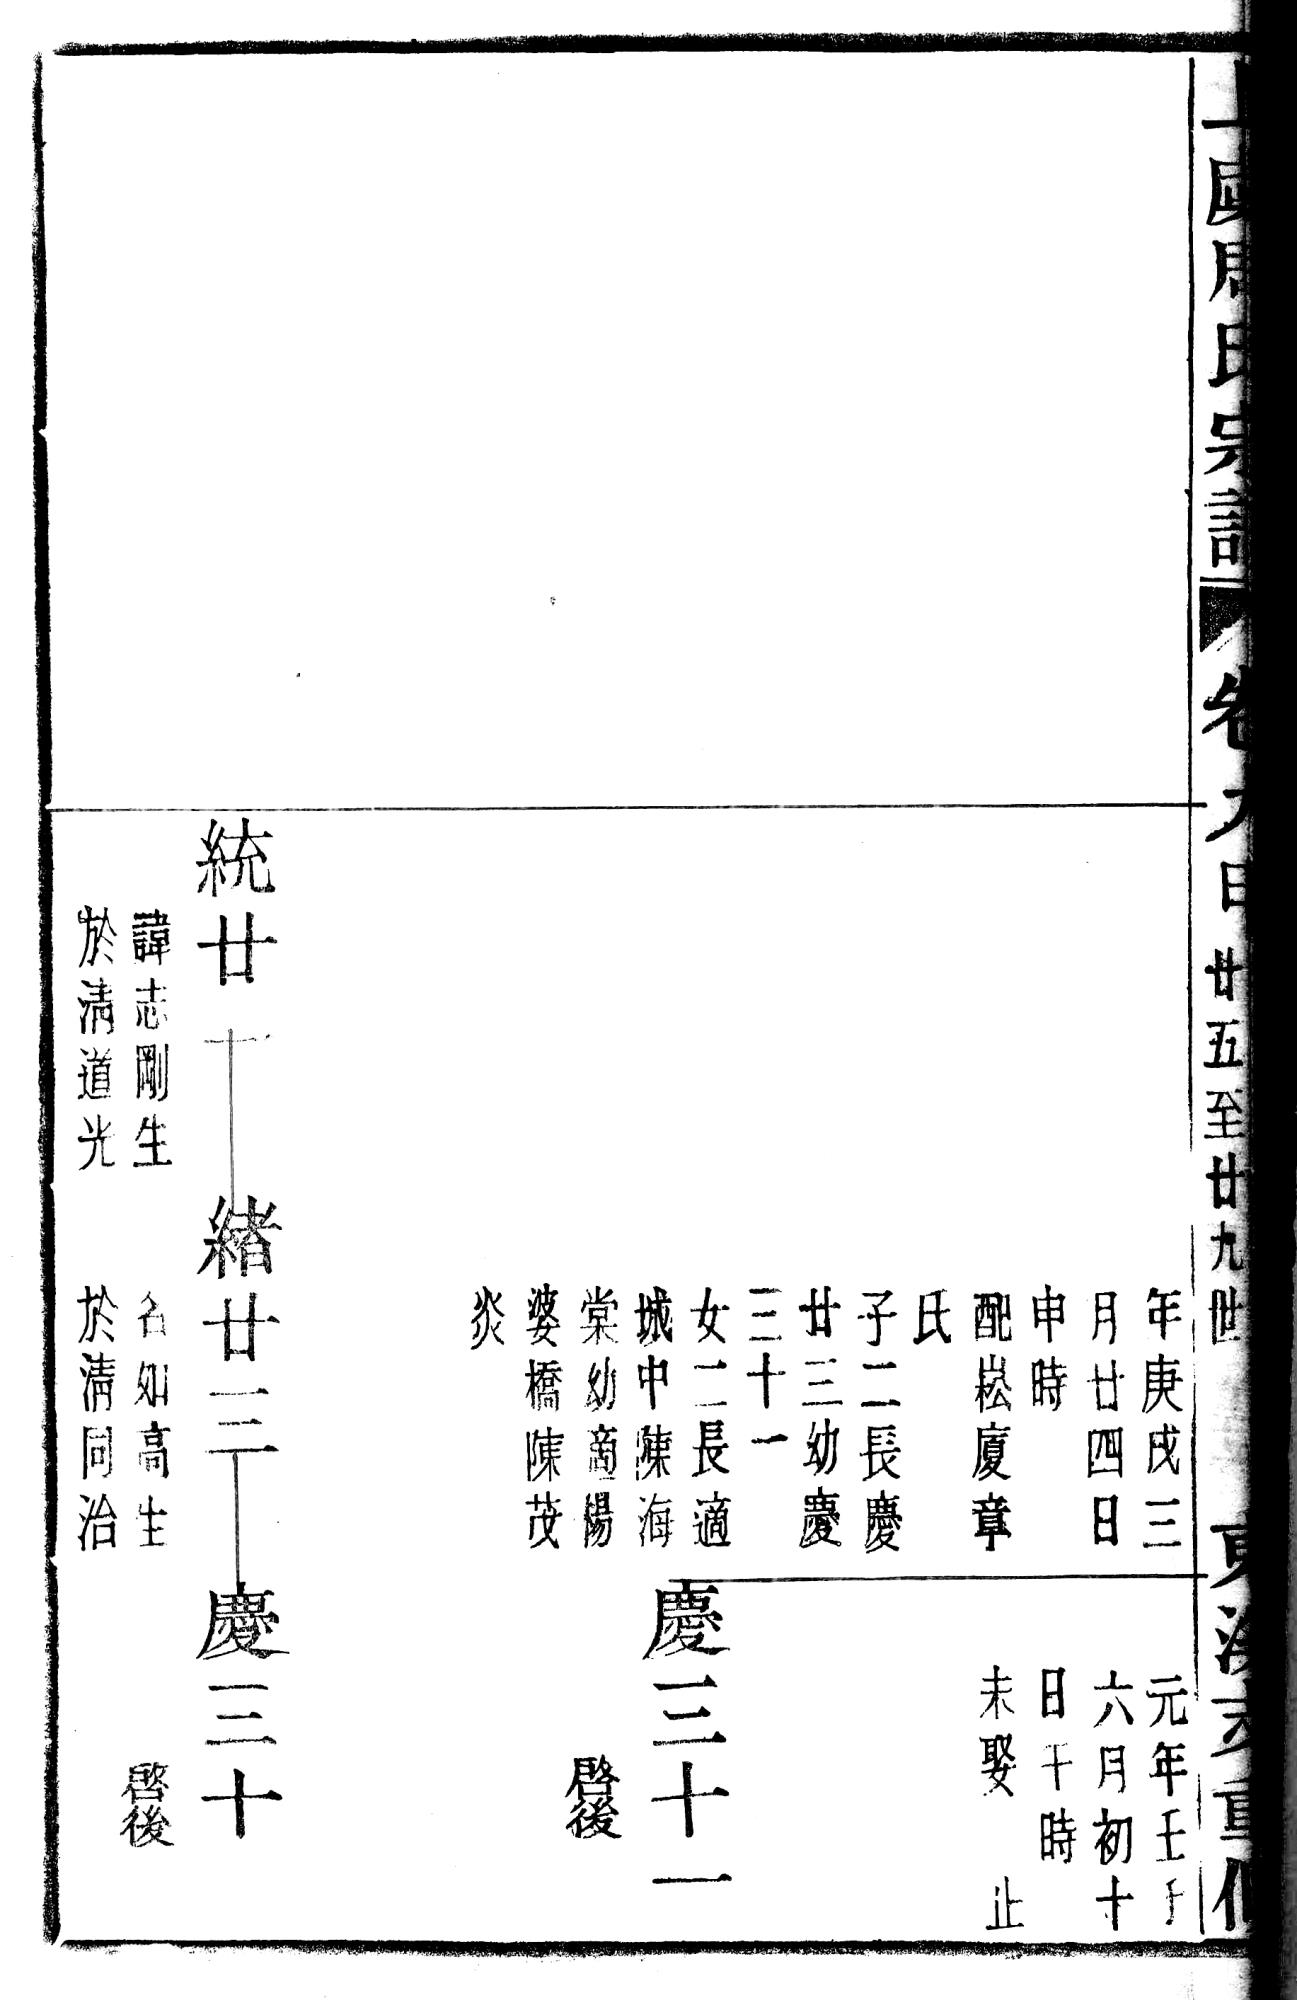 上虞周氏宗譜 卷九 日 廿五至廿九世 重修
年庚戌三
月廿四日
申時
配崧廈章
氏
子二長慶
廿三幼慶
三十一
女二長適
城中陳海
棠幼適楊
婆橋陳茂
炎
元年壬子
六月初十
日午時
未娶 止
慶三十一
啓後
統廿一
諱志剛生
於清道光
緒廿三
名如高生
於清同治
慶三十
啓後